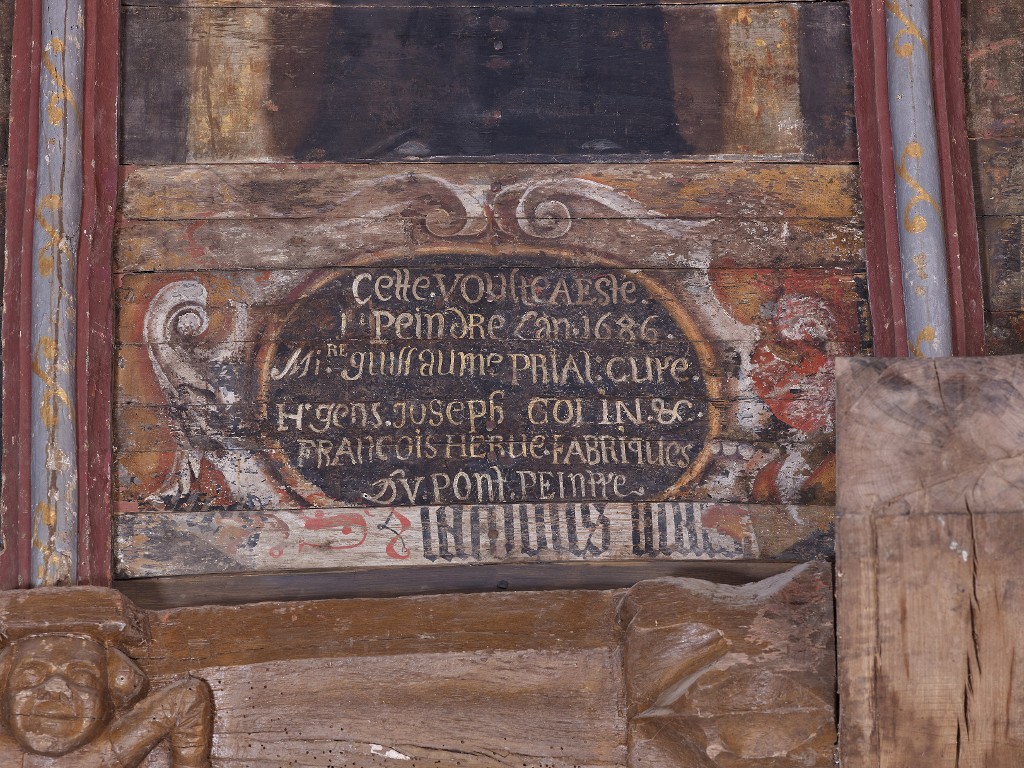 Cette.VOUlteAESte.
PeinDRe Lan.1686.
Mi.RE guillaume PRIAL: CURE.
H'gens.JOSEPh COLIN.&.
FRANCOIS HERUE.FABRIQUES
DV.PONT.PEINTRE